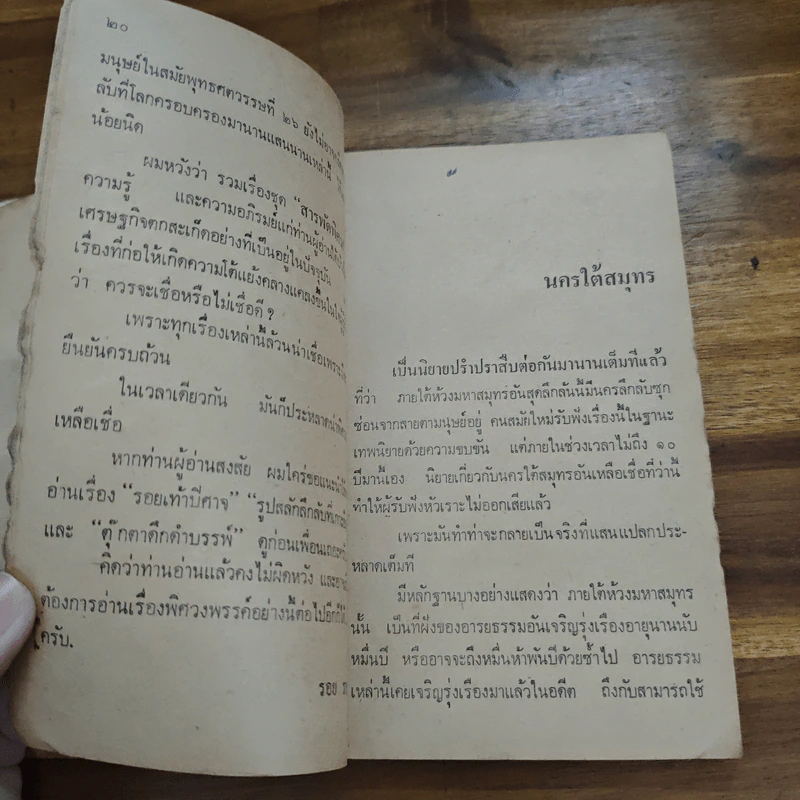 ๒๐
มนุษย์ในสมัยพุทธศตวรรษที่ ๒๖ ยังไม่อาจ
ลับที่โลกครอบครองมานานแสนนานเหล่านี้
น้อยนิด
ผมหวังว่า รวมเรื่องชุด “สารพัด
ความรู้ และความอภิรมย์แก่ท่านผู้อ่าน
เศรษฐกิจตกสะเก็ดอย่างที่เป็นอยู่ในปัจจุบัน
เรื่องที่ก่อให้เกิดความโต้แย้งคลางแคลงขึ้นในใจ
ว่า ควรจะเชื่อหรือไม่เชื่อดี ?
เพราะทุกเรื่องเหล่านี้ล้วนน่าเชื่อเพราะ
ยืนยันครบถ้วน
ในเวลาเดียวกัน มันก็ประหลาด
เหลือเชื่อ
หากท่านผู้อ่านสงสัย ผมใคร่ขอแนะนำ
อ่านเรื่อง “รอยเท้าปีศาจ” “รูปสลักลึกลับ
และ “ตุ๊กตาดึกดำบรรพ์” ดูก่อนเพื่อน
คิดว่าท่านอ่านแล้วคงไม่ผิดหวัง และ
ต้องการอ่านเรื่องพิศวงพรรค์อย่างนี้ต่อไปอีก
ครับ.
รอย
นครใต้สมุทร
เป็นนิยายปรำปราสืบต่อกันมานานเต็มทีแล้ว
ที่ว่า ภายใต้ห้วงมหาสมุทรอันสุดลึกล้นนั้นมีนครลึกลับซุก
ซ่อนจากสายตามนุษย์อยู่ คนสมัยใหม่รับฟังเรื่องนี้ในฐานะ
เทพนิยายด้วยความขบขัน แต่ภายในช่วงเวลาไม่ถึง ๑๐
ปีมานี้เอง นิยายเกี่ยวกับนครใต้สมุทรอันเหลือเชื่อที่ว่านี้
ทำให้ผู้รับฟังหัวเราะไม่ออกเสียแล้ว
เพราะมันทำท่าจะกลายเป็นจริงที่แสนแปลกประ-
หลาดเต็มที
มีหลักฐานบางอย่างแสดงว่า ภายใต้ห้วงมหาสมุทร
นั้น เป็นที่ฝังของอารยธรรมอันเจริญรุ่งเรืองอายุนานนับ
หมื่นปี หรืออาจจะถึงหมื่นห้าพันปีด้วยซ้ำไป อารยธรรม
เหล่านี้เคยเจริญรุ่งเรืองมาแล้วในอดีต ถึงกับสามารถใช้